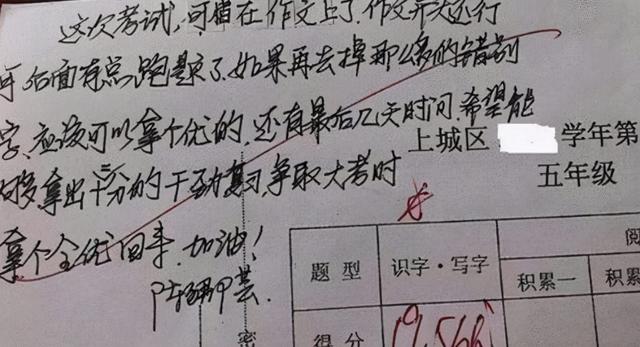 这次考试,可惜在作文上了.作文开头还行
可后面有点跑题了.如果再去掉那么多的错别
字、应该可以拿个优的.还有最后几天时间.希望能
够拿出十二分的干劲复习.争取大考时
拿个全优回来.加油!
上城区 学年第
五年级
题 型 识字·写字 阅
积累一 积累
得 分
密